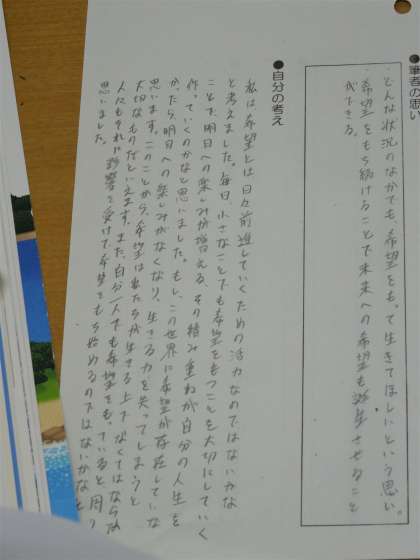 ●筆者の思い
・どんな状況のなかでも、希望をもって生きてほしいという思い。
・希望をもち続けることで未来への希望も
させること
ができる。
●自分の考え
私は希望とは日々前進していくための活力なのではないかな
と考えました。毎日、小さなことでも希望をもつことを大切にしていく
ことで、明日への楽しみが増える、その積み重ねが自分の人生を
作っていくのかなと思いました。もし、この世界に希望が存在していな
かったら、明日への楽しみがなくなり、生きる力を失ってしまうと
思います。このことから、希望は私たちが生きる上でなくてはならない
大切なものだといえます。また、自分一人でも希望をもっていると周りの
人にもそれが影響を受けて希望をもち始めるのではないかなと
思いました。